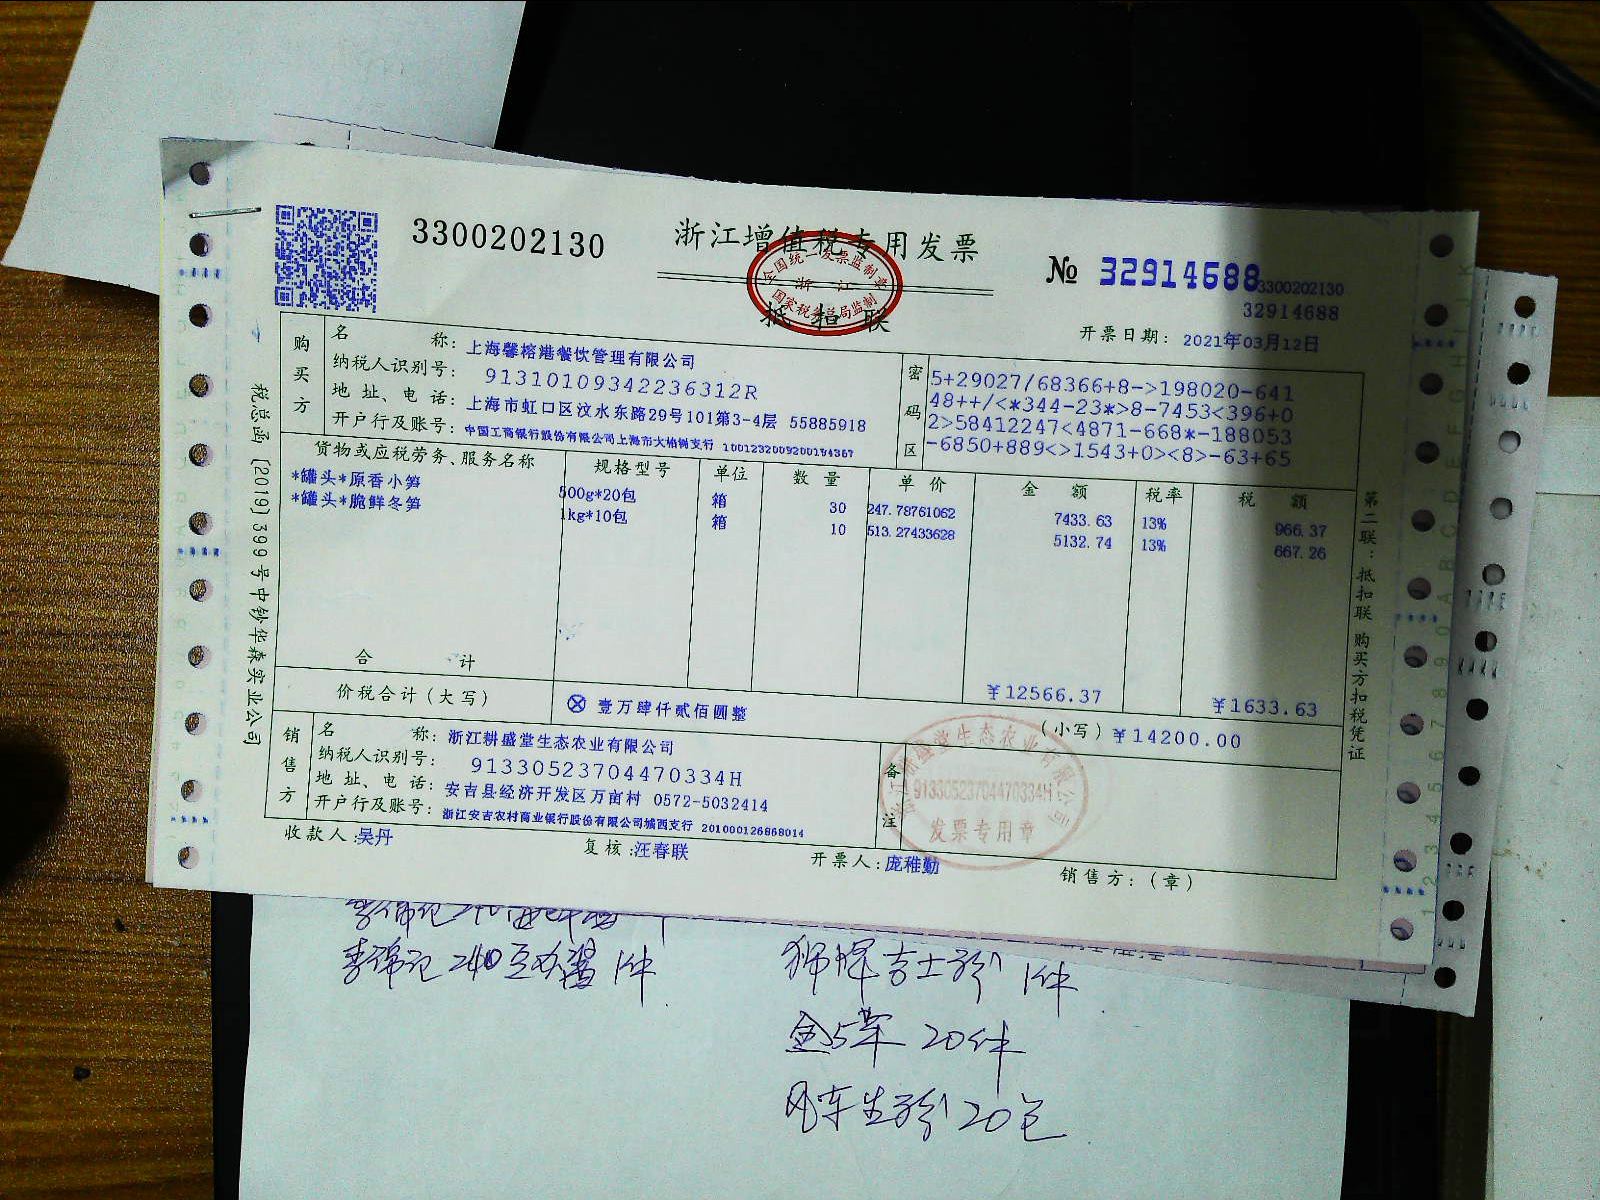 3300202130
浙江增值税专用发票
全国统一发票监制章
浙江
国家税务总局监制
抵扣联
№ 32914688
3300202130
32914688
开票日期: 2021年03月12日
购买方
名称: 上海馨榕港餐饮管理有限公司
纳税人识别号: 91310109342236312R
地址、电话: 上海市虹口区汶水东路29号101第3-4层 55885918
开户行及账号: 中国工商银行股份有限公司上海市大柏树支行 1001232009200194367
密码区
5+29027/68366+8->198020-641
48++/<*344-23*>8-7453<396+0
2>58412247<4871-668*-188053
-6850+889<>1543+0><8>-63+65
货物或应税劳务、服务名称 规格型号 单位 数量 单价 金额 税率 税额
*罐头*原香小笋 500g*20包 箱 30 247.78761062 7433.63 13% 966.37
*罐头*脆鲜冬笋 1kg*10包 箱 10 513.27433628 5132.74 13% 667.26
合计 ¥12566.37 ¥1633.63
价税合计(大写) ⊗壹万肆仟贰佰圆整 (小写) ¥14200.00
销售方
名称: 浙江耕盛堂生态农业有限公司
纳税人识别号: 91330523704470334H
地址、电话: 安吉县经济开发区万亩村 0572-5032414
开户行及账号: 浙江安吉农村商业银行股份有限公司城西支行 201000126868014
备注
浙江耕盛堂生态农业有限公司
91330523704470334H
发票专用章
收款人: 吴丹 复核: 汪春联 开票人: 庞稚勤 销售方:(章)
税总函[2019]399号中钞华森实业公司
第二联:抵扣联 购买方扣税凭证
李锦记
李锦记 240 1件
狮牌吉士粉 1件
20件
风车生粉 20包